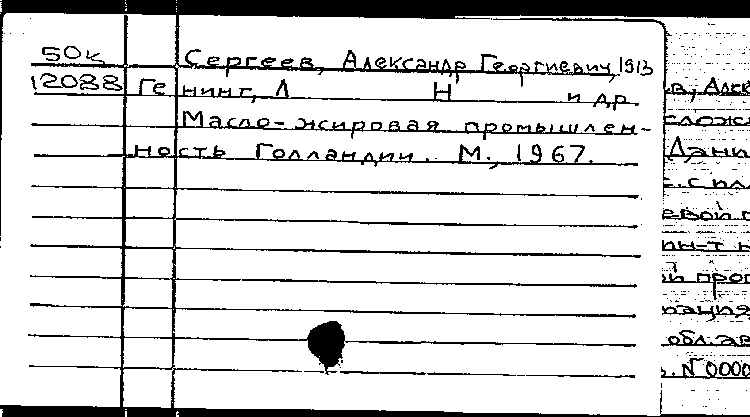 50к Сергеев, Александр Георгиевич, 1913
12088 Ге нинг, Л Н и др.
Масло-жировая промышлен-
ность Голландии. М., 1967.
в, Алек
слож
Дани
с. с пл
евой п
ин-т н
й прог
обл. ав
. N 0000